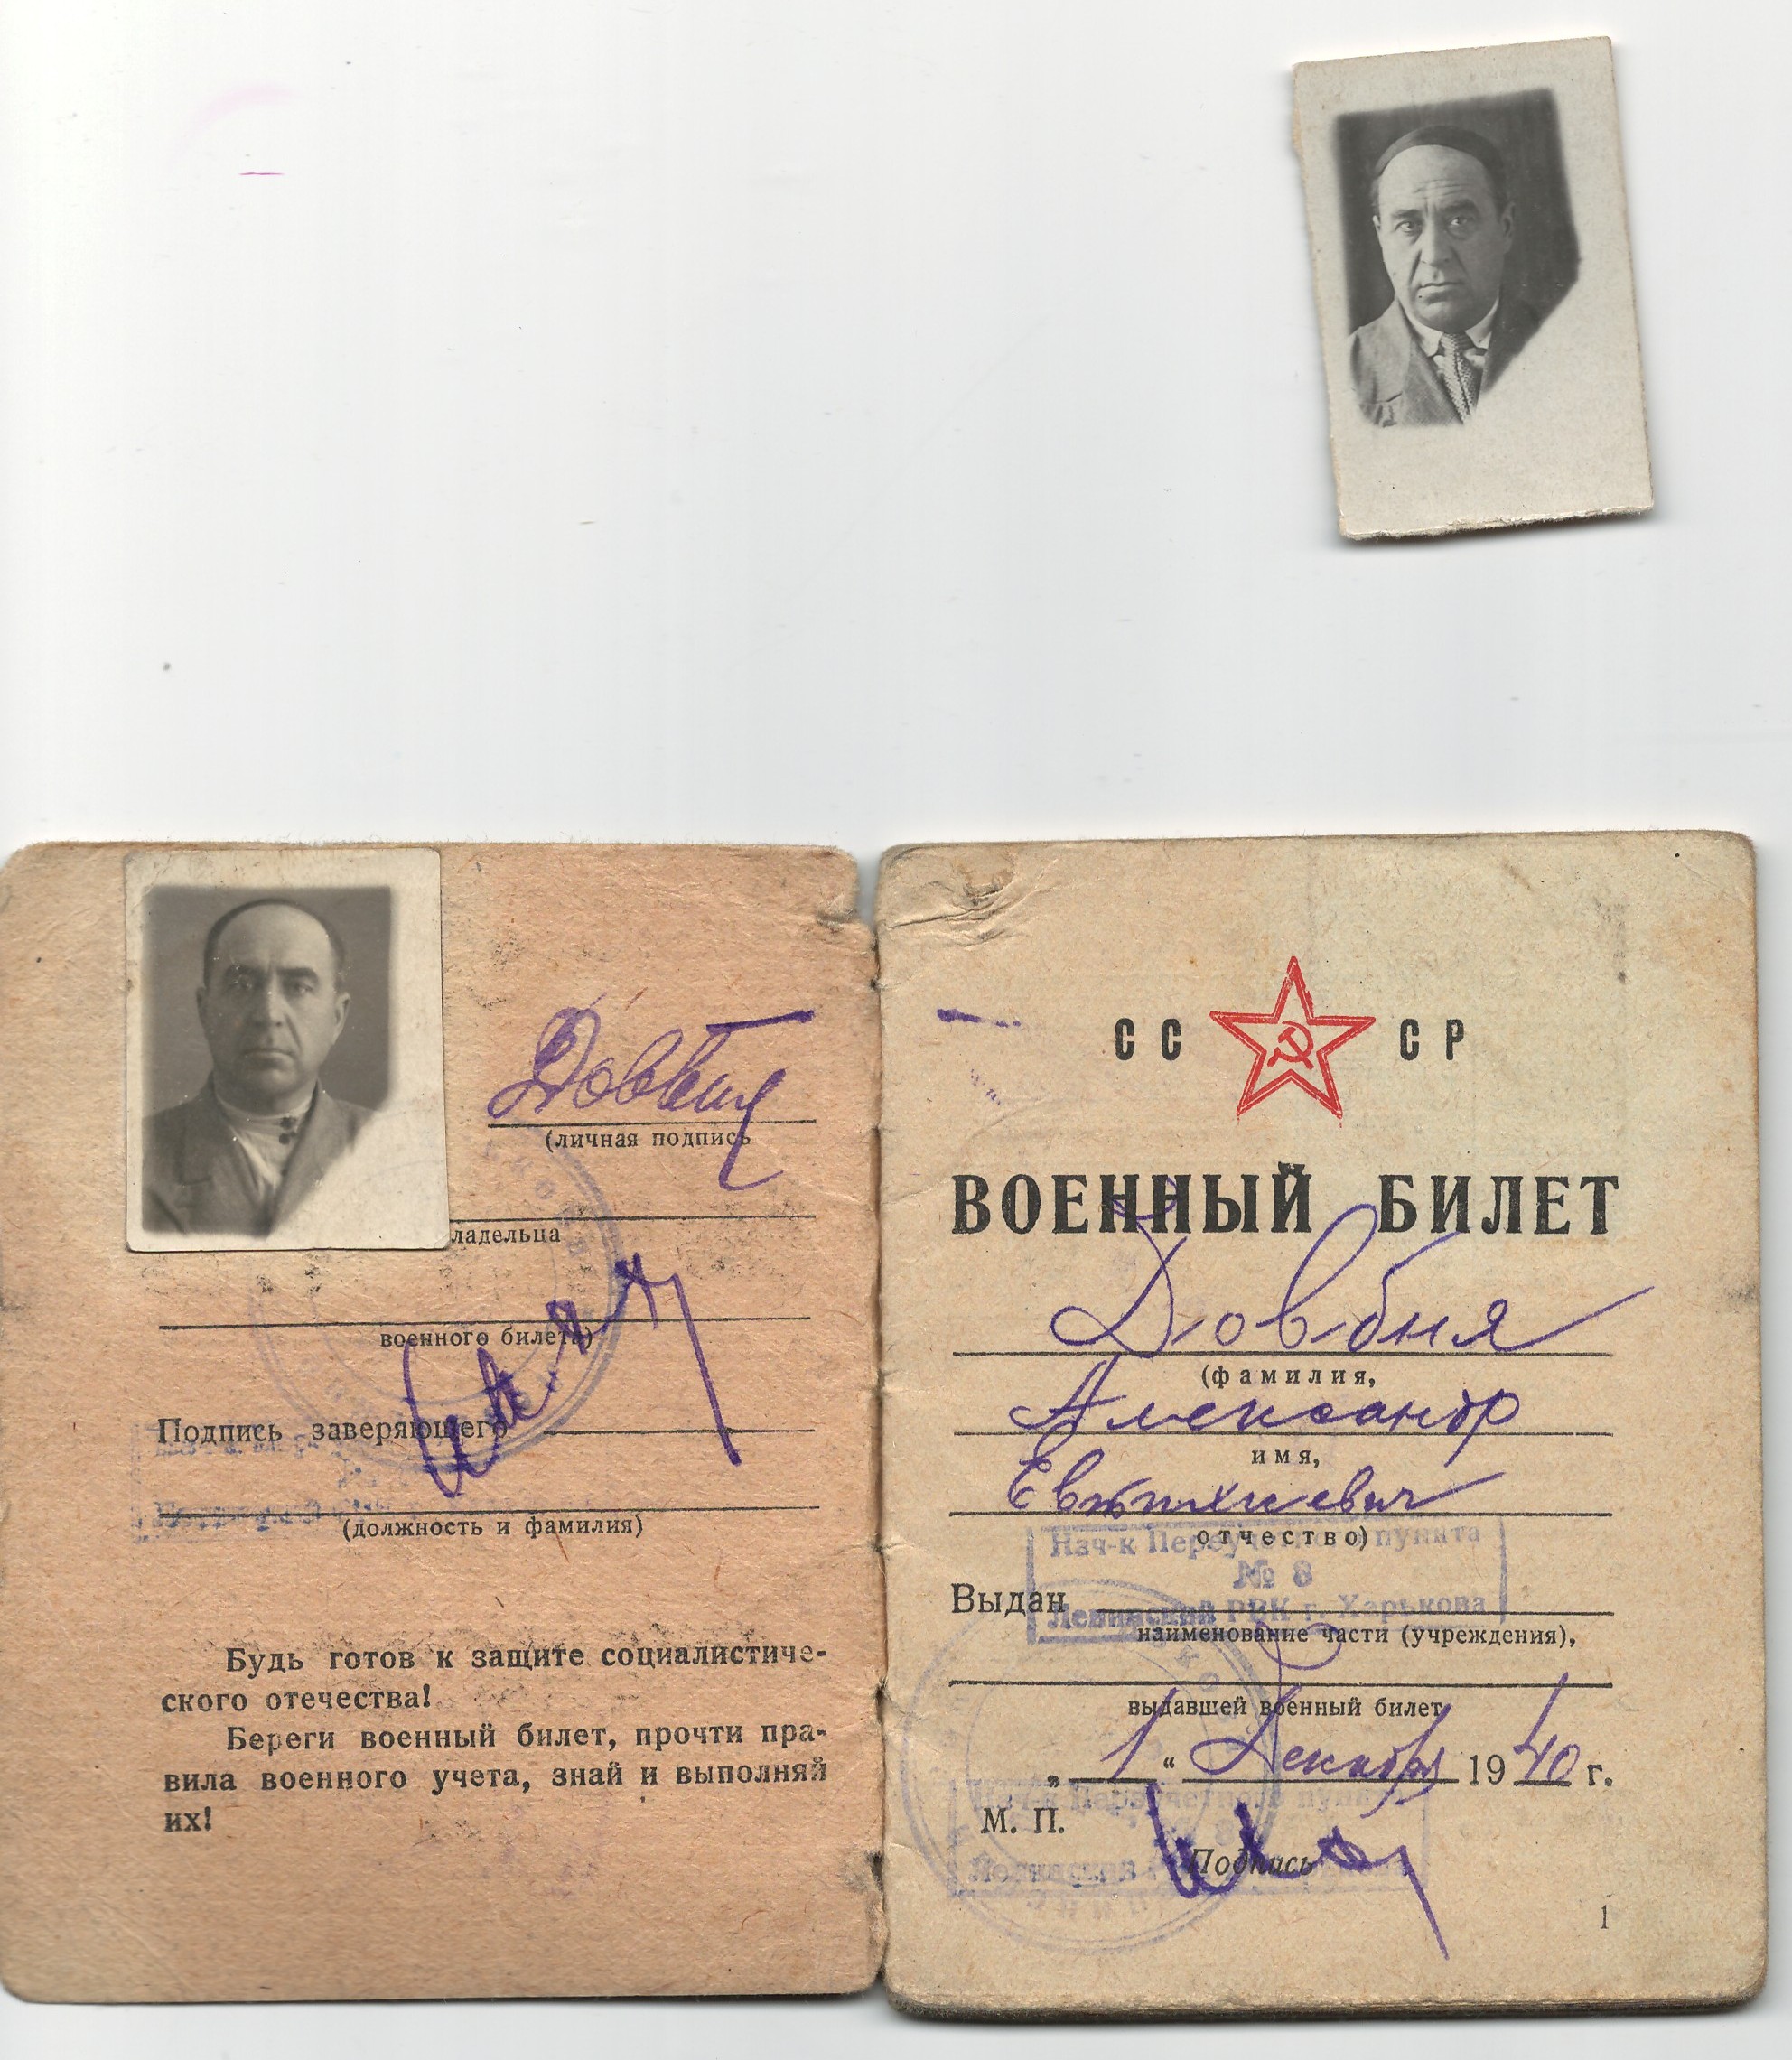 Довбня
(личная подпись
ладельца
военного билета)
Подпись заверяющего
(должность и фамилия)
Будь готов к защите социалистиче-
ского отечества!
Береги военный билет, прочти пра-
вила военного учета, знай и выполняй
их!
СС СР
ВОЕННЫЙ БИЛЕТ
Довбня
(фамилия,
Александр
имя,
Евтихиевич
отчество)
Нач-к Переучетного пункта
№ 8
Выдан
Ленинский РВК г. Харькова
наименование части (учреждения),
выдавшей военный билет
„ 1 “ Декабря 1940 г.
Нач-к Переучетного пункта
М. П.
Подпись
1